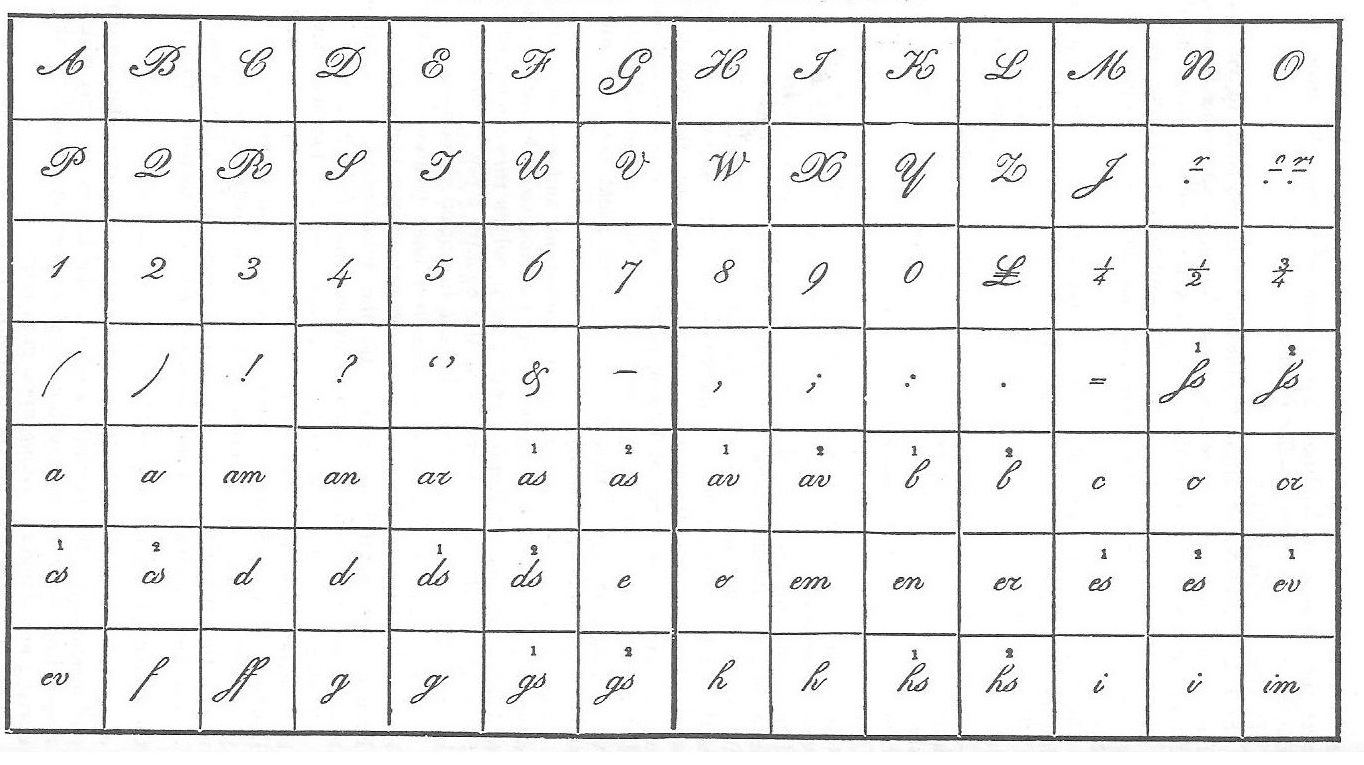 A B C D E F G H I K L M N O
P Q R S T U V W X Y Z J r c r
1 2 3 4 5 6 7 8 9 0 £ ¼ ½ ¾
( ) ! ? ‘ ’ & — , ; : . = ¹fs ²fs
a a am an ar ¹as ²as ¹av ²av ¹b ²b c c cr
¹cs ²cs d d ¹ds ²ds e e em en er ¹es ²es ¹ev
ev f ff g g ¹gs ²gs h h ¹hs ²hs i i im